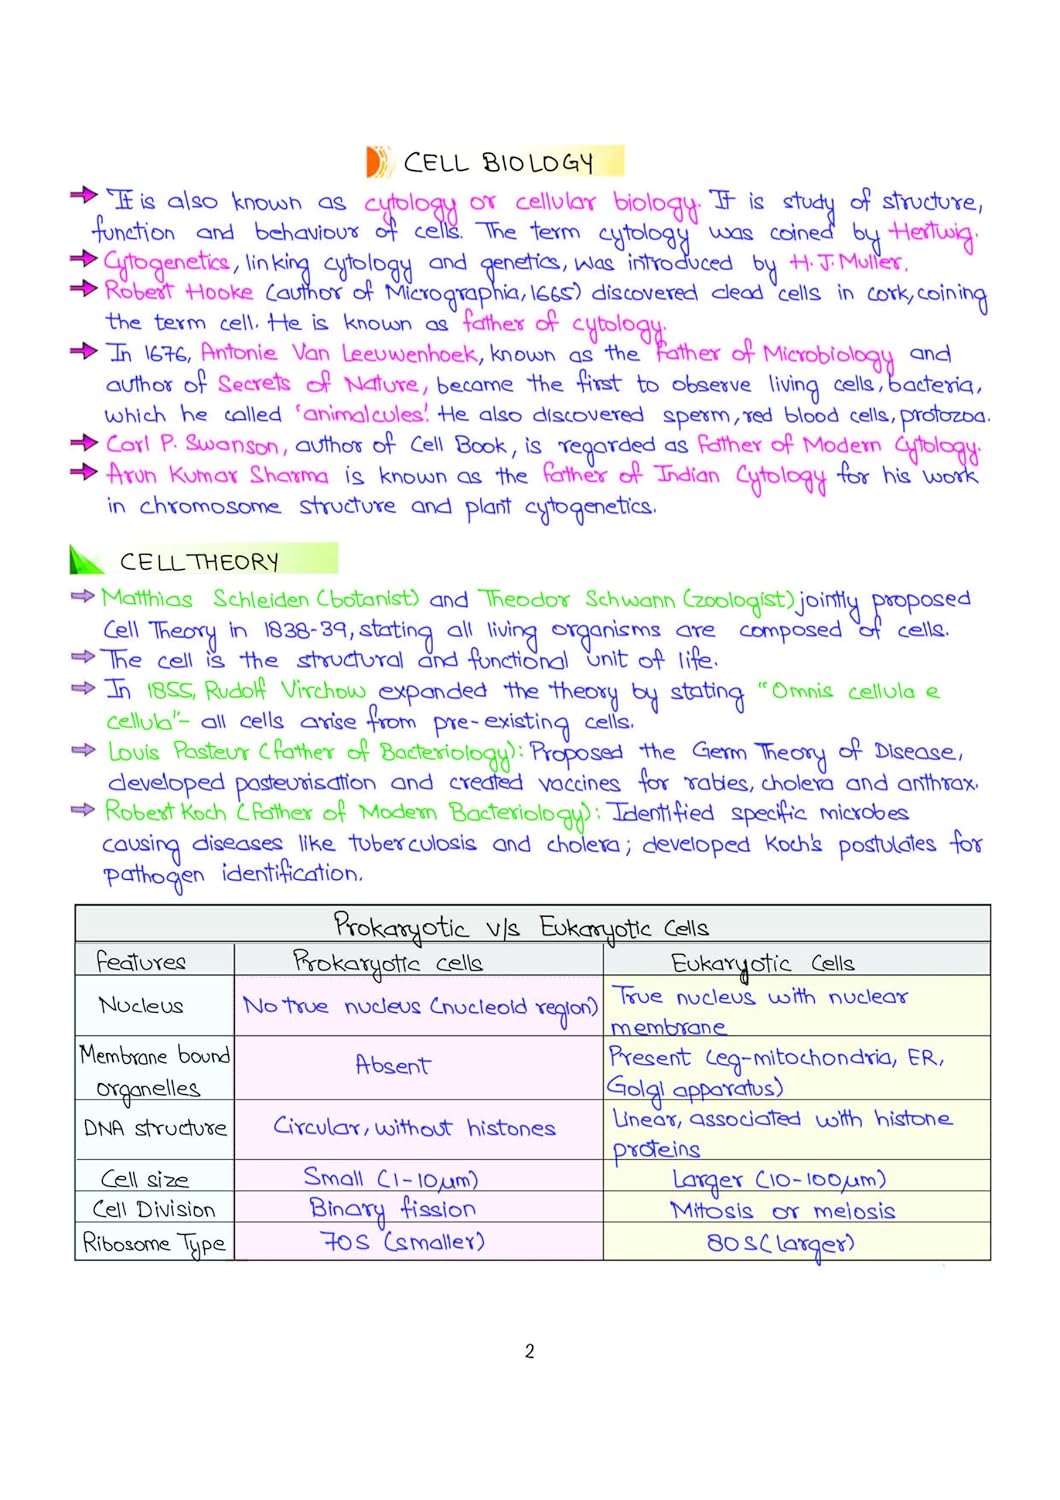 CELL BIOLOGY
➔ It is also known as cytology or cellular biology. It is study of structure,
function and behaviour of cells. The term cytology was coined by Hertwig.
➔ Cytogenetics, linking cytology and genetics, was introduced by H.J.Muller.
➔ Robert Hooke (author of Micrographia, 1665) discovered dead cells in cork, coining
the term cell. He is known as father of cytology.
➔ In 1676, Antonie Van Leeuwenhoek, known as the Father of Microbiology and
author of Secrets of Nature, became the first to observe living cells, bacteria,
which he called 'animalcules'. He also discovered sperm, red blood cells, protozoa.
➔ Carl P. Swanson, author of Cell Book, is regarded as Father of Modern Cytology.
➔ Arun Kumar Sharma is known as the Father of Indian Cytology for his work
in chromosome structure and plant cytogenetics.
CELL THEORY
⇨ Matthias Schleiden (botanist) and Theodor Schwann (zoologist) jointly proposed
Cell Theory in 1838-39, stating all living organisms are composed of cells.
⇨ The cell is the structural and functional unit of life.
⇨ In 1855, Rudolf Virchow expanded the theory by stating "Omnis cellula e
cellula"- all cells arise from pre-existing cells.
⇨ Louis Pasteur (Father of Bacteriology): Proposed the Germ Theory of Disease,
developed pasteurisation and created vaccines for rabies, cholera and anthrax.
⇨ Robert Koch (Father of Modern Bacteriology): Identified specific microbes
causing diseases like tuberculosis and cholera; developed Koch's postulates for
pathogen identification.
Prokaryotic v/s Eukaryotic Cells
Features Prokaryotic cells Eukaryotic Cells
Nucleus No true nucleus (nucleoid region) True nucleus with nuclear
membrane
Membrane bound Absent Present (eg-mitochondria, ER,
organelles Golgi apparatus)
DNA structure Circular, without histones Linear, associated with histone
proteins
Cell size Small (1-10µm) Larger (10-100µm)
Cell Division Binary fission Mitosis or meiosis
Ribosome Type 70S (smaller) 80S (larger)
2